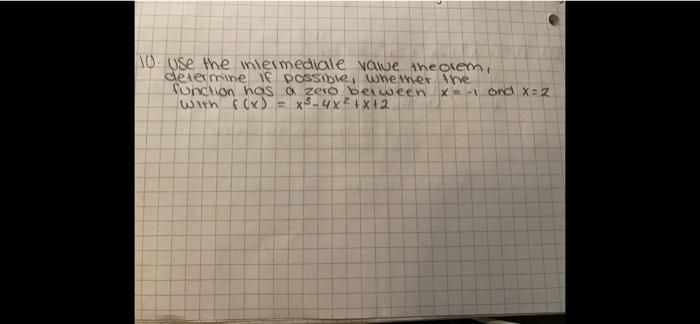 10. Use the intermediate value theorem,
determine if possible, whether the
function has a zero between x=-1 and x=2
with f(x) = x³-4x²+x+2